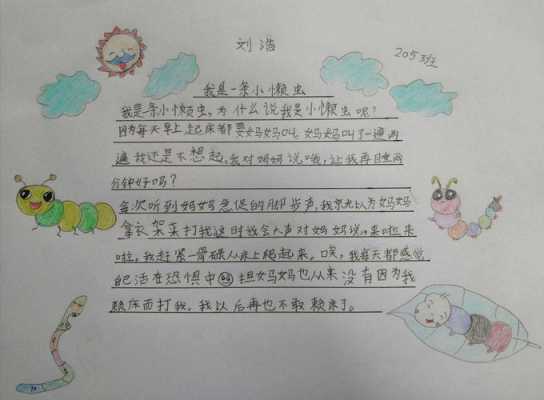 刘浩
205班
我是一条小懒虫
我是一条小懒虫,为什么说我是小懒虫呢?
因为每天早上起床都要妈妈叫,妈妈叫了一遍两
遍我还是不想起,我对妈妈说哦,让我再睡两
分钟好吗?
每次听到妈妈急促的脚步声,我就以为妈妈
拿衣架来打我这时我会大声对妈妈说,来啦来
啦,我赶紧一骨碌从床上爬起来。唉,我每天都感觉
自己活在恐惧中 但妈妈也从来没有因为我
赖床而打我。我以后再也不敢赖床了。